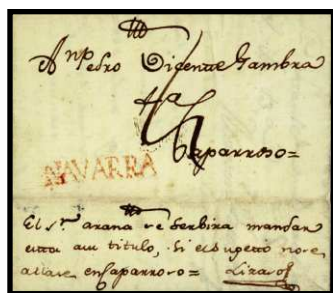 A Dn Pedro Vicente Gambra
Caparroso=
NAVARRA
El Sr. arana se Serbira mandar
esta a su titulo, si el sugetto no se
allase en Caparroso=